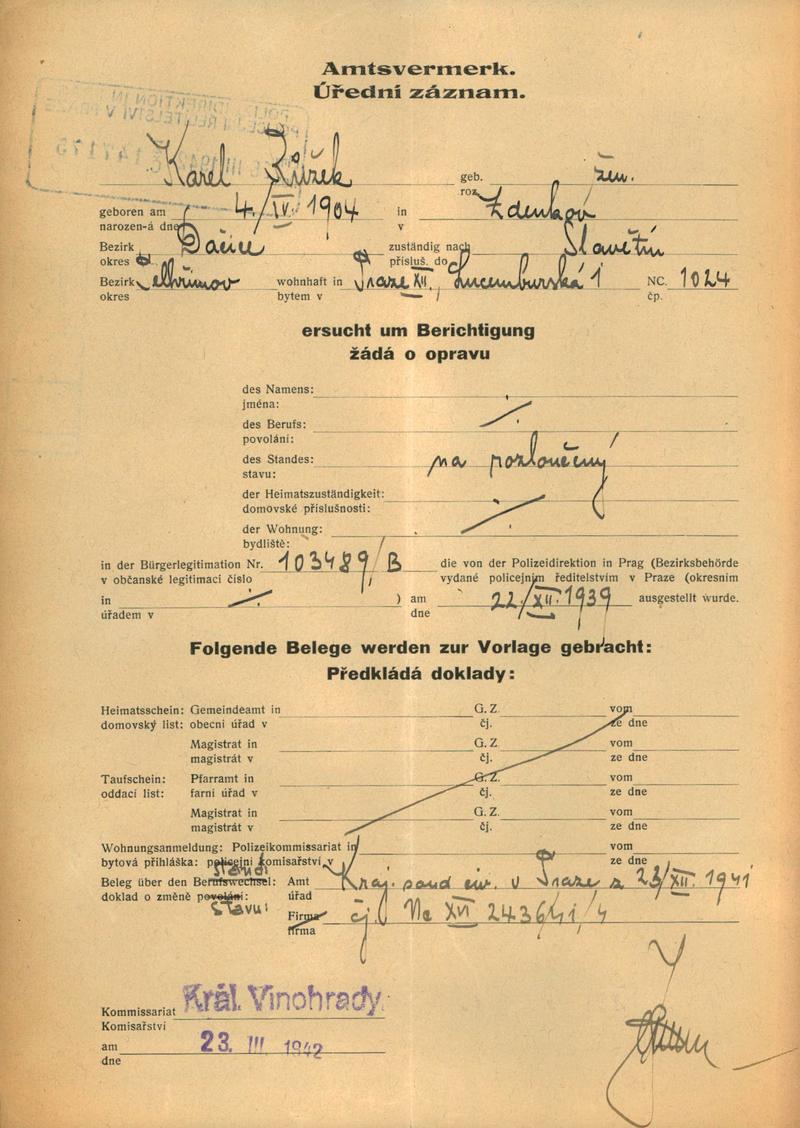 Amtsvermerk.
Úřední záznam.
Karel Křížek geb. žen.
roz.
geboren am 4./IV. 1904 in Zdenkov
narozen-á dne v
Bezirk Dačice zuständig nach Slavětín
okres přísluš. do
Bezirk Pelhřimov wohnhaft in Praze XII., Lucemburská 1 NC. 1024
okres bytem v čp.
ersucht um Berichtigung
žádá o opravu
des Namens:
jména:
des Berufs:
povolání:
des Standes: na rozloučený
stavu:
der Heimatszuständigkeit:
domovské příslušnosti:
der Wohnung:
bydliště:
in der Bürgerlegitimation Nr. 103489/B die von der Polizeidirektion in Prag (Bezirksbehörde
v občanské legitimaci číslo vydané policejním ředitelstvím v Praze (okresním
in ) am 22./XII. 1939 ausgestellt wurde.
úřadem v dne
Folgende Belege werden zur Vorlage gebracht:
Předkládá doklady:
Heimatsschein: Gemeindeamt in G. Z. vom
domovský list: obecní úřad v čj. ze dne
Magistrat in G. Z. vom
magistrát v čj. ze dne
Taufschein: Pfarramt in G. Z. vom
oddací list: farní úřad v čj. ze dne
Magistrat in G. Z. vom
magistrát v čj. ze dne
Wohnungsanmeldung: Polizeikommissariat in vom
bytová přihláška: policejní komisařství v ze dne
Beleg über den Berufswechsel: Amt Kraj. soud civ. v Praze z 23/XII. 1941
doklad o změně povolání: úřad
stavu: Firma čj. Nc XVI 2436/41/4
firma
Kommissariat Král. Vinohrady
Komisařství
am 23. III. 1942
dne